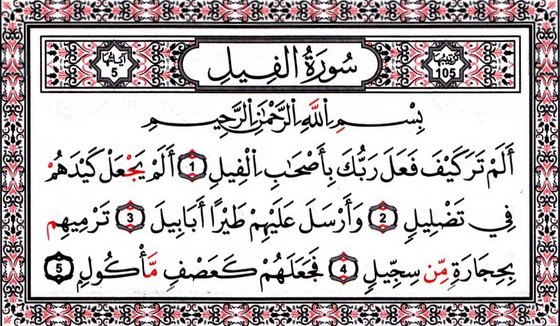 آياتها 5 سُورَةُ الفِيل ترتيبها 105
بِسْمِ اللَّهِ الرَّحْمَنِ الرَّحِيمِ
أَلَمْ تَرَ كَيْفَ فَعَلَ رَبُّكَ بِأَصْحَابِ الْفِيلِ 1 أَلَمْ يَجْعَلْ كَيْدَهُمْ
فِي تَضْلِيلٍ 2 وَأَرْسَلَ عَلَيْهِمْ طَيْرًا أَبَابِيلَ 3 تَرْمِيهِم
بِحِجَارَةٍ مِّن سِجِّيلٍ 4 فَجَعَلَهُمْ كَعَصْفٍ مَّأْكُولٍ 5